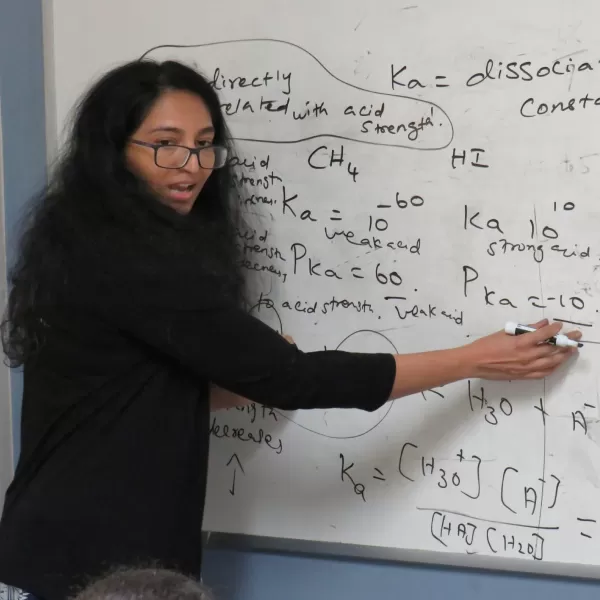 directly
related with acid
strength!
Ka = dissocia
Consta
acid
strength
CH4
HI
Ka = 10^-60
weak acid
Ka 10^10
strong acid.
acid
strength
PKa = 60.
PKa = -10.
to acid strength. weak acid
H3O + A^-
decreases
Ka = [H3O^+] [A^-]
[HA] [H2O]
=